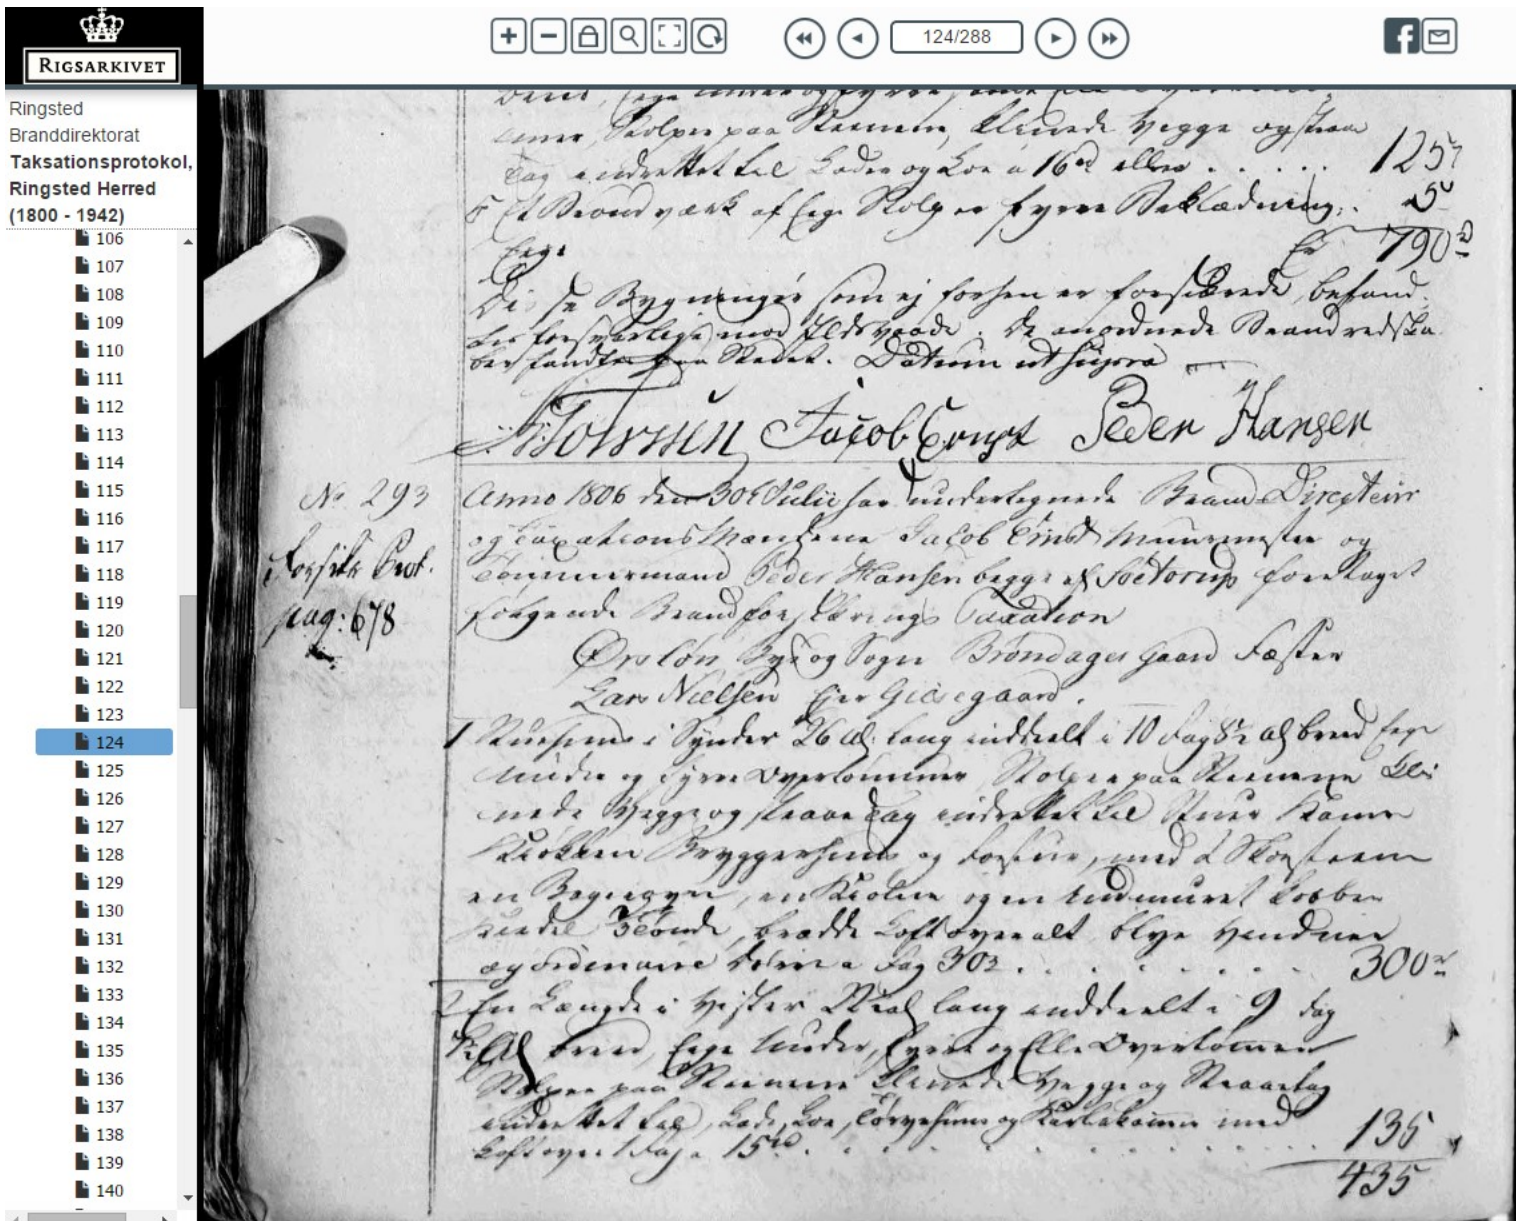 124/288
RIGSARKIVET
Ringsted
Branddirektorat
Taksationsprotokol,
Ringsted Herred
(1800 - 1942)
106
107
108
109
110
111
112
113
114
115
116
117
118
119
120
121
122
123
124
125
126
127
128
129
130
131
132
133
134
135
136
137
138
139
140
Stolper paa Steenene, kleenede Vegge og straae
Tag indrettet til Lade og Loe a 16rd eller . . . . . 125
5 Et Brøndværk af Eege Stolper fyrre Beklædning. 5
Er 790
Disse Bygninger som ej forhen er forsikrede, befand-
tes forsvarlige mod Ildsvaade. De anordnede Brandredska-
ber fandtes paa Stedet. Datum ut supra
Jacob Ernst Peder Hansen
No 293 Anno 1806 den 30te Julii har undertegnede Brand Directeur
og Taxations Mændene Jacob Ernst Muurmester og
Forsikr Prot. Tømmermand Peder Hansen begge af foretaget
pag: 678 følgende Brandforsikrings Taxation
Ørsløv Bye og Sogn Brøndagergaard Fæster
Lars Nielsen Ejer Giesegaard.
1 Stuehuus i Synder 26 al: lang inddeelt i 10 fag 8½ al bred Eege
under og fyrre Overtømmer, Stolper paa Steenene klee-
nede Vegge og straae Tag indrettet til Stue Kamer
Kiøkken Bryggerhuus og Forstue, med 1 Skorsteen
en Bagerovn, en Kiølle og en indmuret Kobber
Kiedel Tønde, brædde Loft overalt blye Vinduer
og ordinaire Dørre a fag 30r . . . . . 300
2 En Længde i Vester al lang inddeelt i 9 fag
al bred, Eege under, fyrre og Elle Overtømmer
Stolper paa Steenene kleenede Vegge og Straaetag
indrettet til, Lade, Loe, Tørvehuus og Karlekamer med
Loft over 1 fag a 15rd . . . . . 135
435